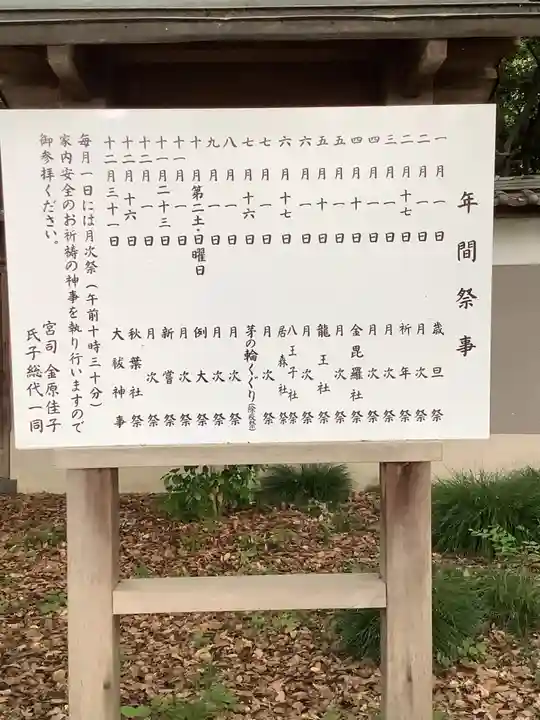 年間祭事
一月一日 歳旦祭
二月一日 月次祭
二月十七日 祈年祭
三月一日 月次祭
四月一日 月次祭
四月十日 金毘羅社祭
五月一日 月次祭
五月十日 龍王社祭
六月一日 月次祭
六月十七日 八王子社祭 居森社祭
七月一日 月次祭
七月十六日 茅の輪くぐり
八月一日 月次祭
九月一日 月次祭
十月第二土・日曜日 例大祭
十一月一日 月次祭
十一月二十三日 新嘗祭
十二月一日 月次祭
十二月十六日 秋葉社祭
十二月三十一日 大祓神事
毎月一日には月次祭(午前十時三十分)
家内安全のお祈祷の神事を執り行いますので
御参拝ください。
宮司 金原佳子
氏子総代一同